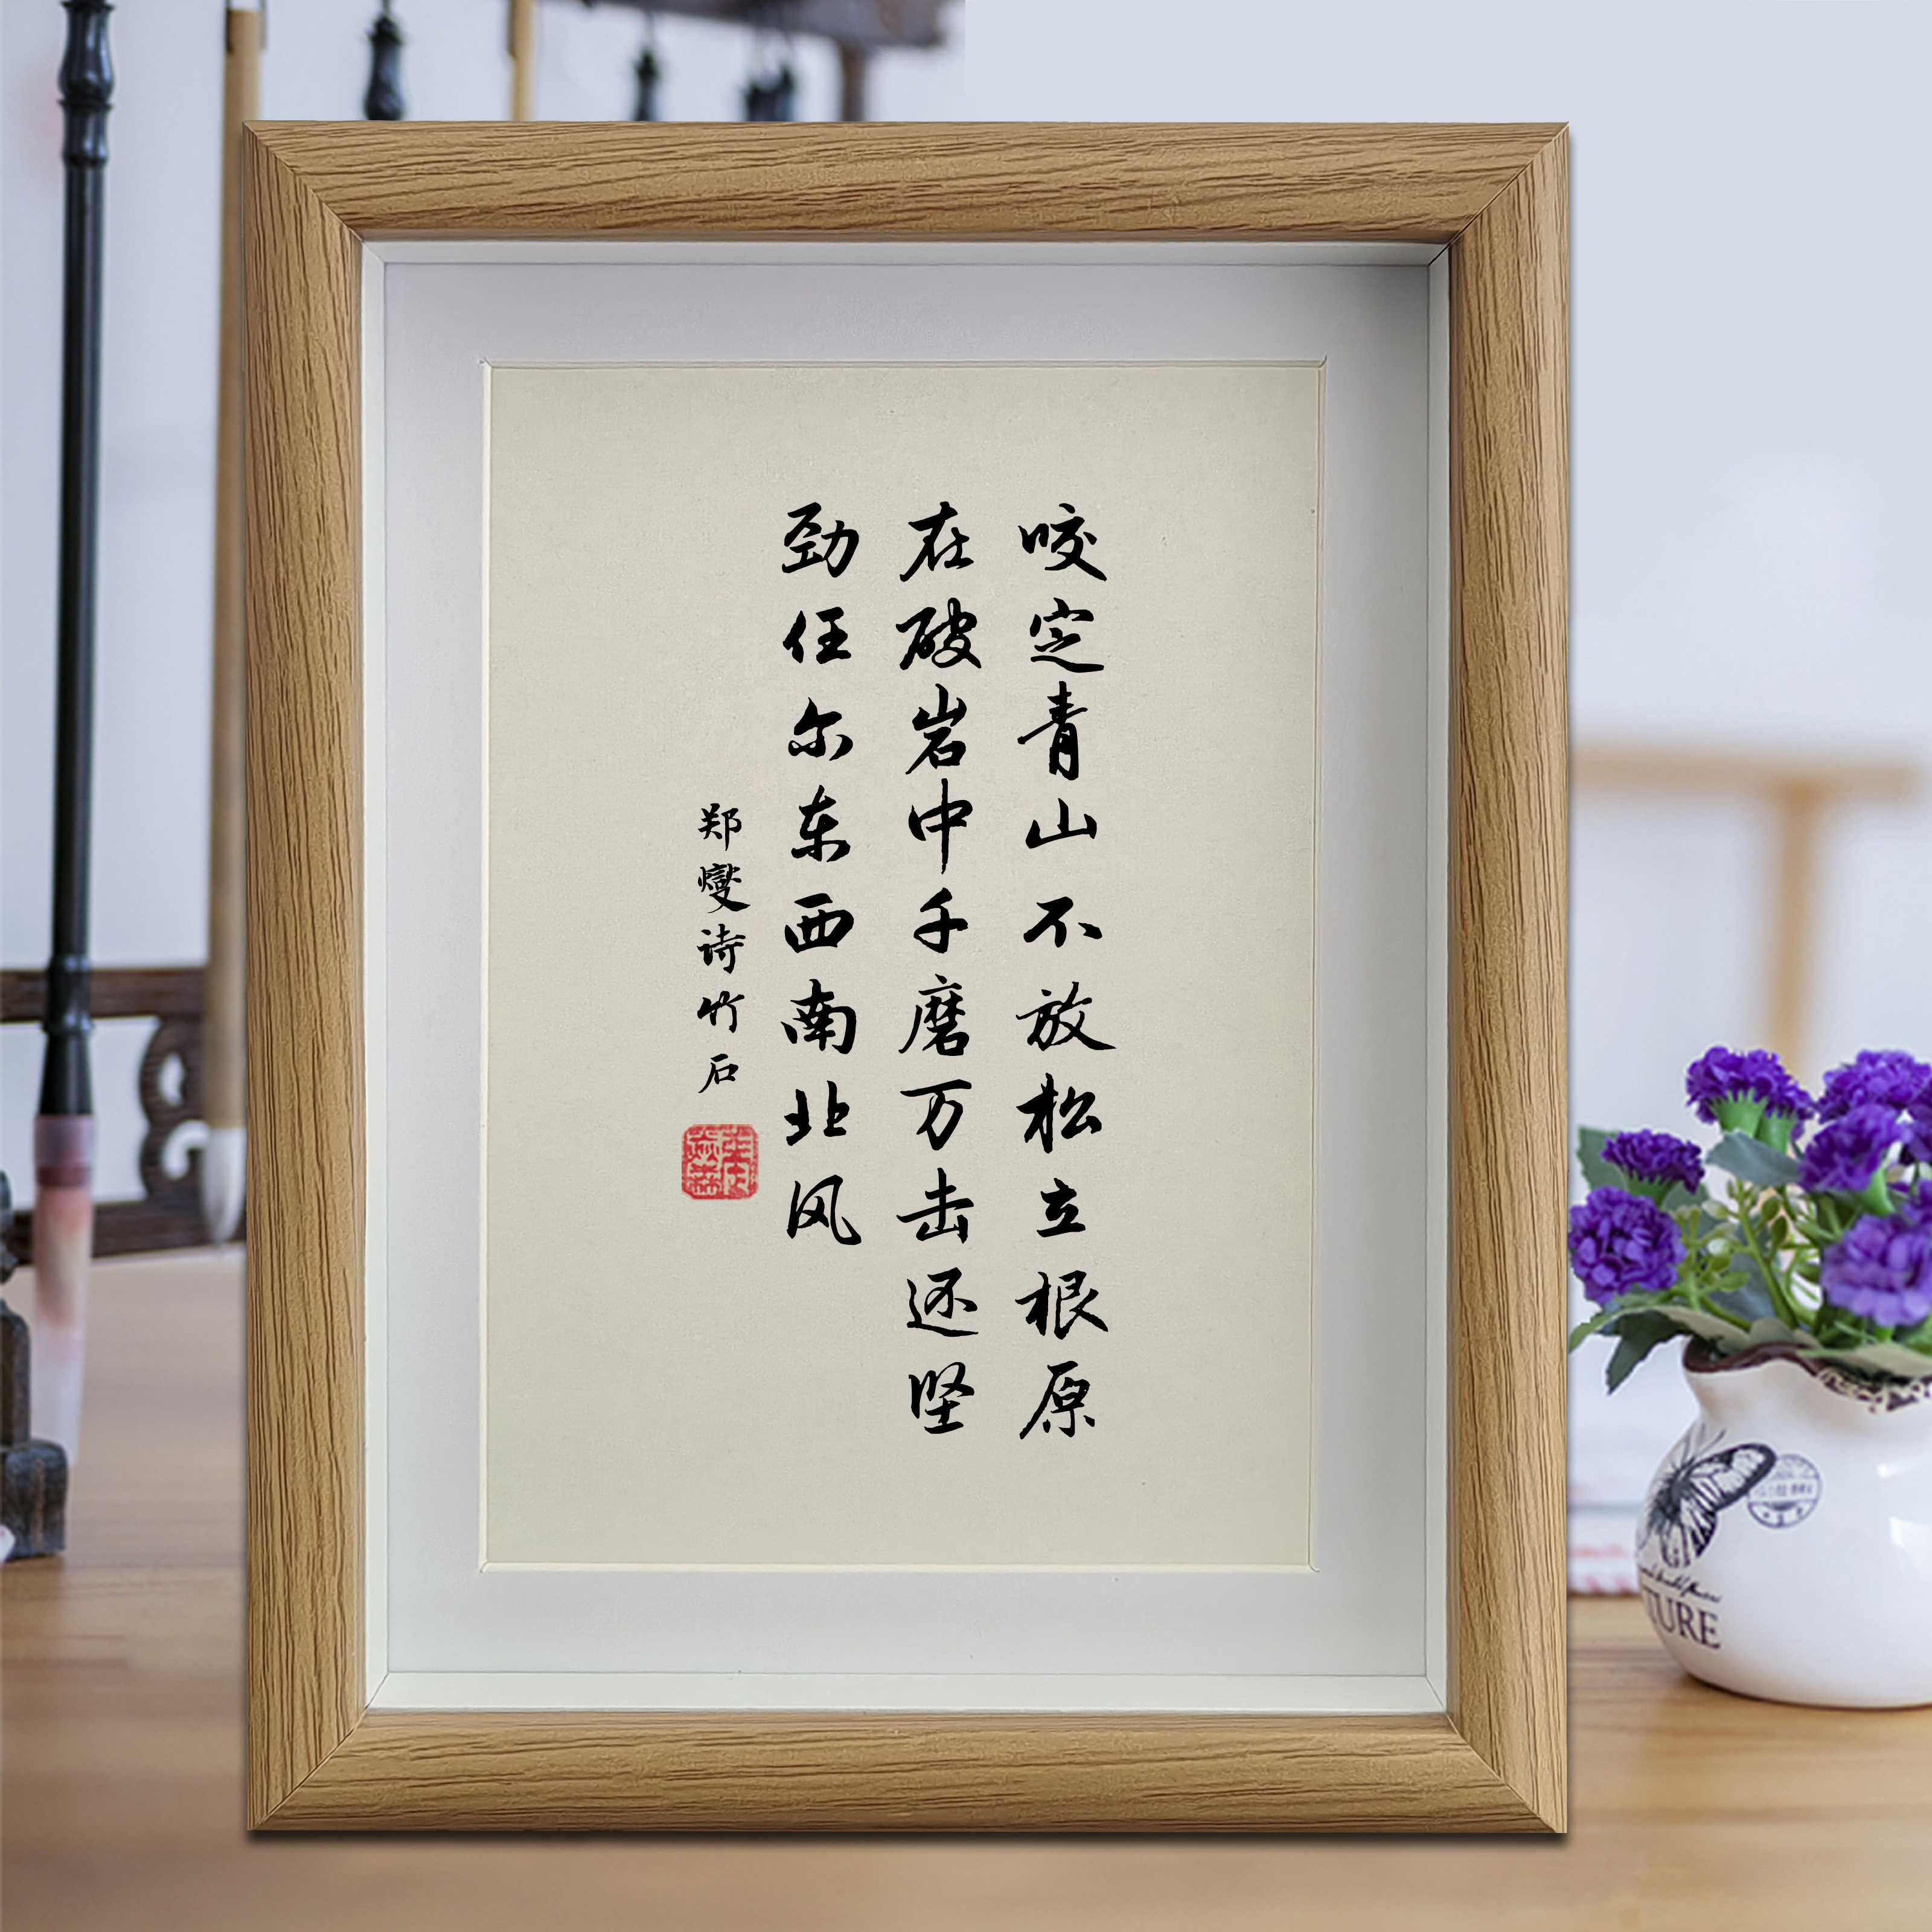 咬定青山不放松立根原
在破岩中千磨万击还坚
劲任尔东西南北风
郑燮诗竹石
TURE